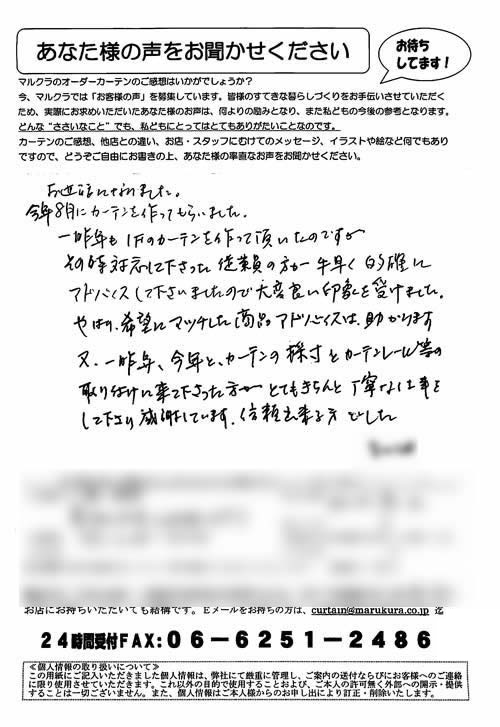 あなた様の声をお聞かせください
お待ち
してます!
マルクラのオーダーカーテンのご感想はいかがでしょうか?
今、マルクラでは「お客様の声」を募集しています。皆様のすてきな暮らしづくりをお手伝いさせていただく
ため、実際にお求めいただいたあなた様のお声は、何よりの励みとなり、また私どもの今後の参考となります。
どんな“ささいなこと”でも、私どもにとってはとてもありがたいことなのです。
カーテンのご感想、他店との違い、お店・スタッフにむけてのメッセージ、イラストや絵など何でもあり
ですので、どうぞご自由にお書きの上、あなた様の率直なお声をお聞かせください。
お世話になりました。
今年8月にカーテンを作ってもらいました。
一昨年も1Fのカーテンを作って頂いたのですが
その時対応して下さった従業員の方が手早く的確に
アドバイスして下さいましたので大変良い印象を受けました。
やはり希望にマッチした商品アドバイスは、助かります
又、一昨年、今年と、カーテンの採寸とカーテンレール等の
取り付けに来て下さった方が とてもきちんと丁寧な仕事を
して下さり感謝しています。信頼出来る方でした
お店にお持ちいただいても結構です。Eメールをお持ちの方は、curtain@marukura.co.jp 迄
24時間受付FAX:06-6251-2486
≪個人情報の取り扱いについて≫
この用紙にご記入いただきました個人情報は、弊社にて厳重に管理し、ご案内の送付ならびにお客様へのご連絡
に限り使用させていただきます。これ以外の目的で使用することおよび、ご本人の許可無く外部への開示・提供
することは一切ございません。また、個人情報はご本人様からのお申し出により訂正・削除いたします。